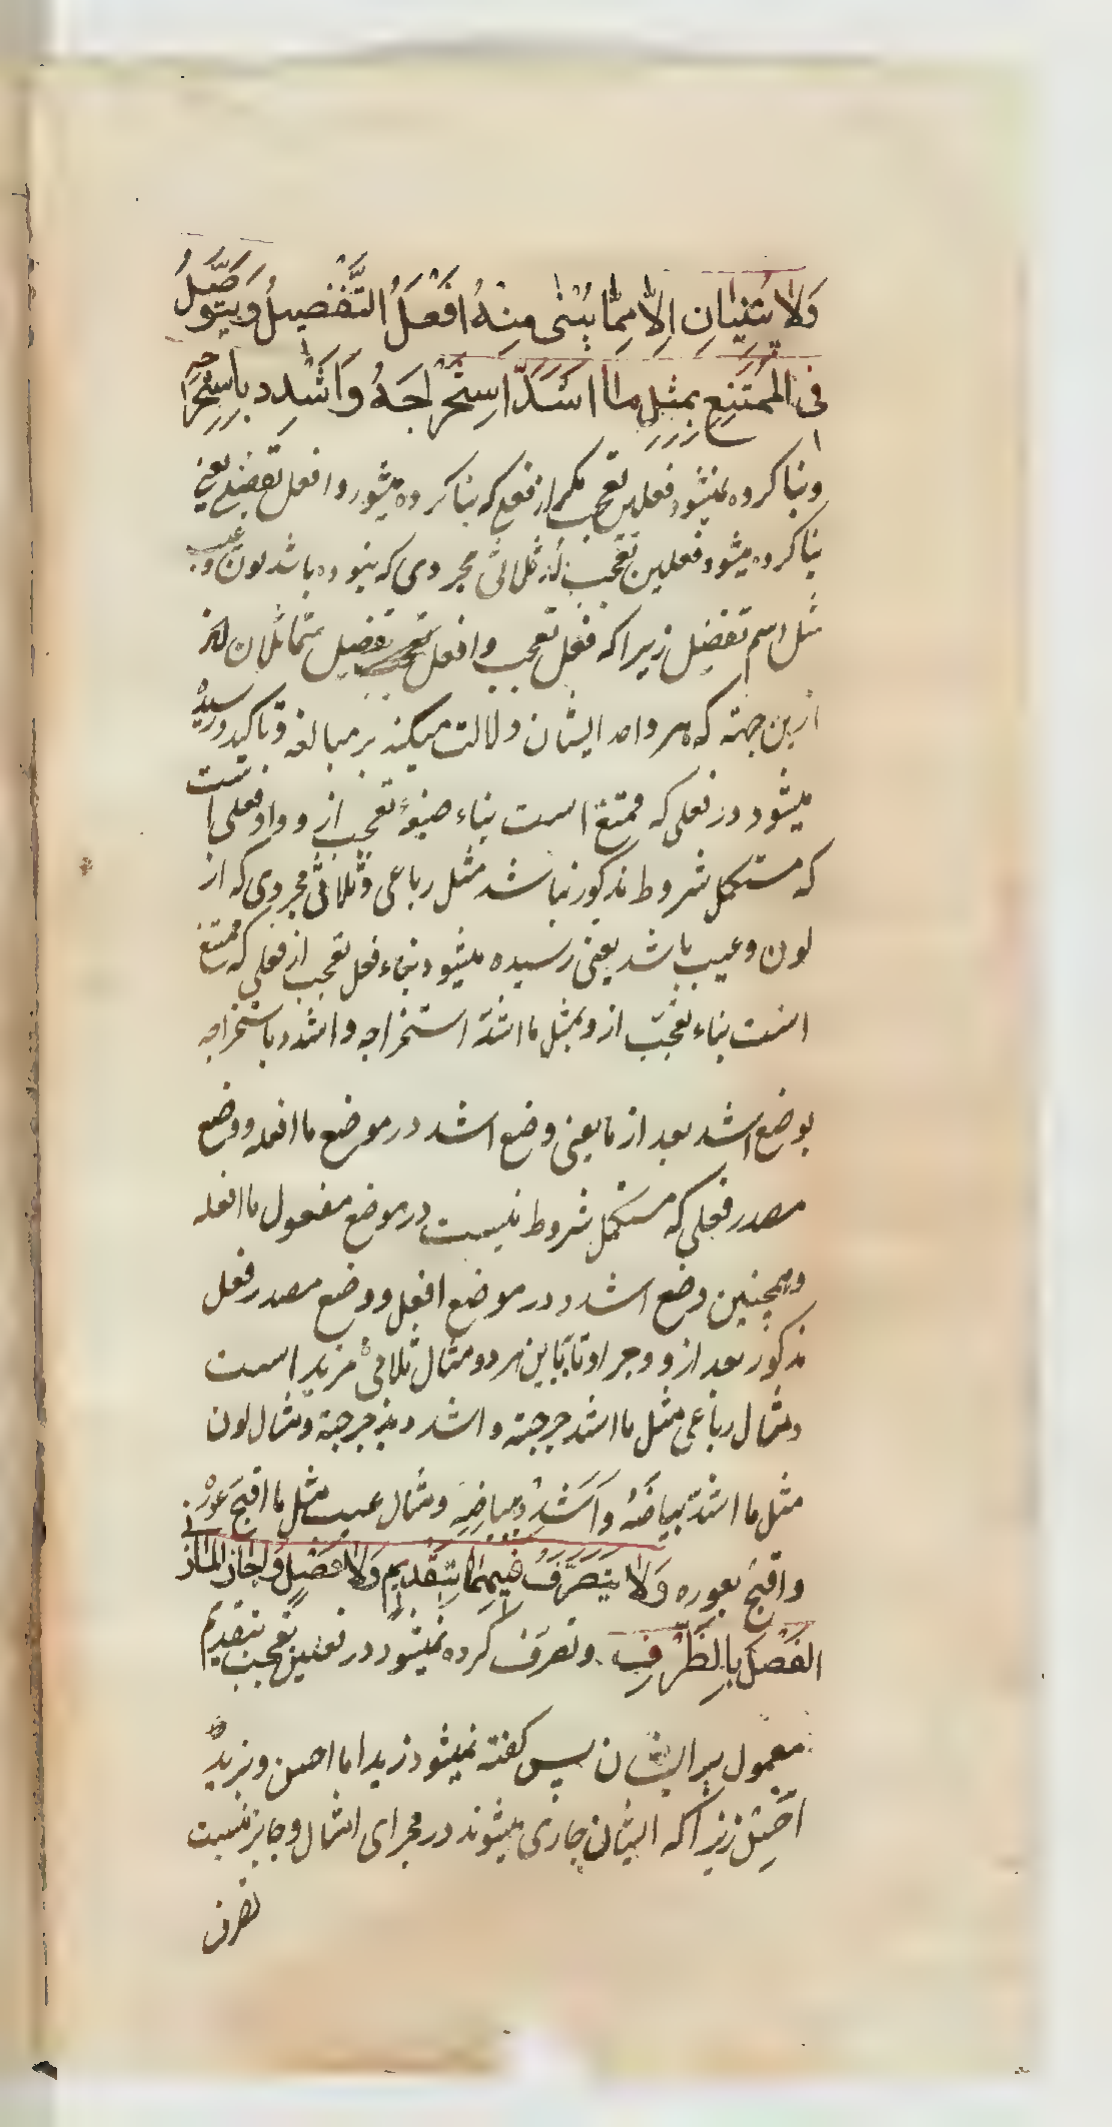 وَلَا یُبْنَیَانِ اِلَّا مِمَّا یُبْنٰی مِنْهُ اَفْعَلُ التَّفْضِیلِ وَیُتَوَصَّلُ
فِی الْمُمْتَنِعِ بِمِثْلِ مَا اَشَدَّ اِسْتِخْرَاجَهُ وَاَشْدِد بِاِسْتِخْرَاجِهِ
وبنا کرده نمیشود فعلین تعجب مکر از فعلی که بنا کرده میشود از و افعل تفضیل یعنی
بنا کرده میشود فعلین تعجب از ثلاثی مجردی که نبوده باشد لون و عیب
مثل اسم تفضیل زیرا که فعل تعجب و افعل تفضیل متماثلان اند
ازین جهته که هر واحد ایشان دلالت میکند بر مبالغه و تاکید و رسیده
میشود در فعلی که ممتنع است بناء صیغهٔ تعجب از و و او فعلی است
که مستکمل شروط مذکور نباشد مثل رباعی و ثلاثی مجردی که از
لون و عیب باشد یعنی رسیده میشود بناء فعل تعجب از فعلی که ممتنع
است بناء تعجب از و بمثل ما اشدّ استخراجه و اشدد باستخراجه
بوضع اشد بعد از ما یعنی وضع اشد در موضع ما افعله و وضع
مصدر فعلی که مستکمل شروط نیست در موضع مفعول ما افعله
و همچنین وضع اشدد در موضع افعل و وضع مصدر فعل
مذکور بعد از و و جر او تا بباین هر دو مثال ثلاثی مزید است
و مثال رباعی مثل ما اشد دحرجته و اشدد بدحرجته و مثال لون
مثل ما اشدّ بیاضَهُ وَاَشْدِدْ ببیاضِهِ و مثال عیب مثل ما اقبَحَ عَوْرَه
و اقبح بعوره وَلَا یُتَصَرَّفُ فِیهِمَا بِتَقْدِیمٍ وَلَا فَصْلٍ وَاَجَازَ الْمَازِنِی
الفَصْلَ بِالظَّرْفِ و تصرف کرده نمیشود در فعلین تعجب بتقدیم
معمول بر ایشان پس کفته نمیشود زیدا ما احسن و بزیدٍ
احسن زیرا که ایشان جاری میشوند در مجرای امثال و جایز نیست
تصرف